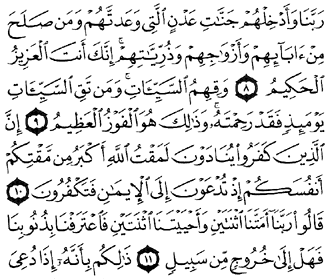 رَبَّنَا وَأَدْخِلْهُمْ جَنَّـٰتِ عَدْنٍ ٱلَّتِى وَعَدتَّهُمْ وَمَن صَلَحَ
مِنْ ءَابَآئِهِمْ وَأَزْوَٰجِهِمْ وَذُرِّيَّـٰتِهِمْ ۚ إِنَّكَ أَنتَ ٱلْعَزِيزُ
ٱلْحَكِيمُ ٨ وَقِهِمُ ٱلسَّيِّـَٔاتِ ۚ وَمَن تَقِ ٱلسَّيِّـَٔاتِ
يَوْمَئِذٍ فَقَدْ رَحِمْتَهُۥ ۚ وَذَٰلِكَ هُوَ ٱلْفَوْزُ ٱلْعَظِيمُ ٩ إِنَّ
ٱلَّذِينَ كَفَرُوا۟ يُنَادَوْنَ لَمَقْتُ ٱللَّهِ أَكْبَرُ مِن مَّقْتِكُمْ
أَنفُسَكُمْ إِذْ تُدْعَوْنَ إِلَى ٱلْإِيمَـٰنِ فَتَكْفُرُونَ ١٠
قَالُوا۟ رَبَّنَآ أَمَتَّنَا ٱثْنَتَيْنِ وَأَحْيَيْتَنَا ٱثْنَتَيْنِ فَٱعْتَرَفْنَا بِذُنُوبِنَا
فَهَلْ إِلَىٰ خُرُوجٍ مِّن سَبِيلٍ ١١ ذَٰلِكُم بِأَنَّهُۥٓ إِذَا دُعِىَ